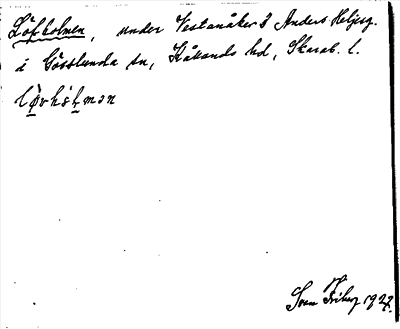 Löfholmen, under Vestanåker 2 Anders Heljesg.
i Gösslunda sn, Kållands hd, Skarab. l.
Sven Friberg 1927.